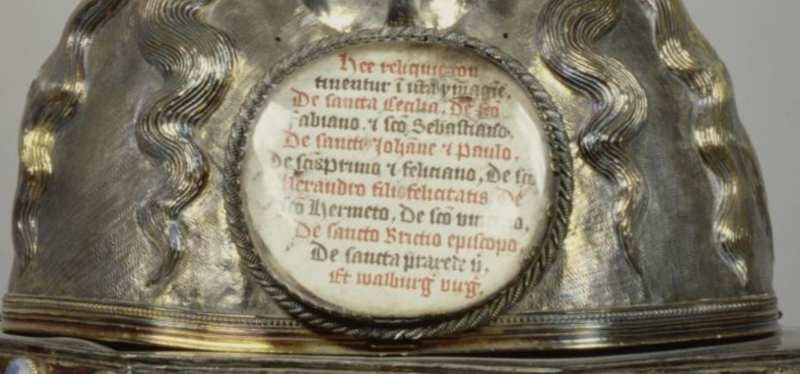 Hec reliquie con
tinentur ī ista ymagīe.
De sancta Cecilia. De scō
fabiano. ⁊ scō Sebastiano.
De sancto Johāne ⁊ Paulo.
De scis Primo ⁊ feliciano, De scō
Alexandro filio felicitatis De
scō Hermeto, De scō
De sancto Brictio episcopo
De sancta praxede v̄.
Et walburḡ virḡ.